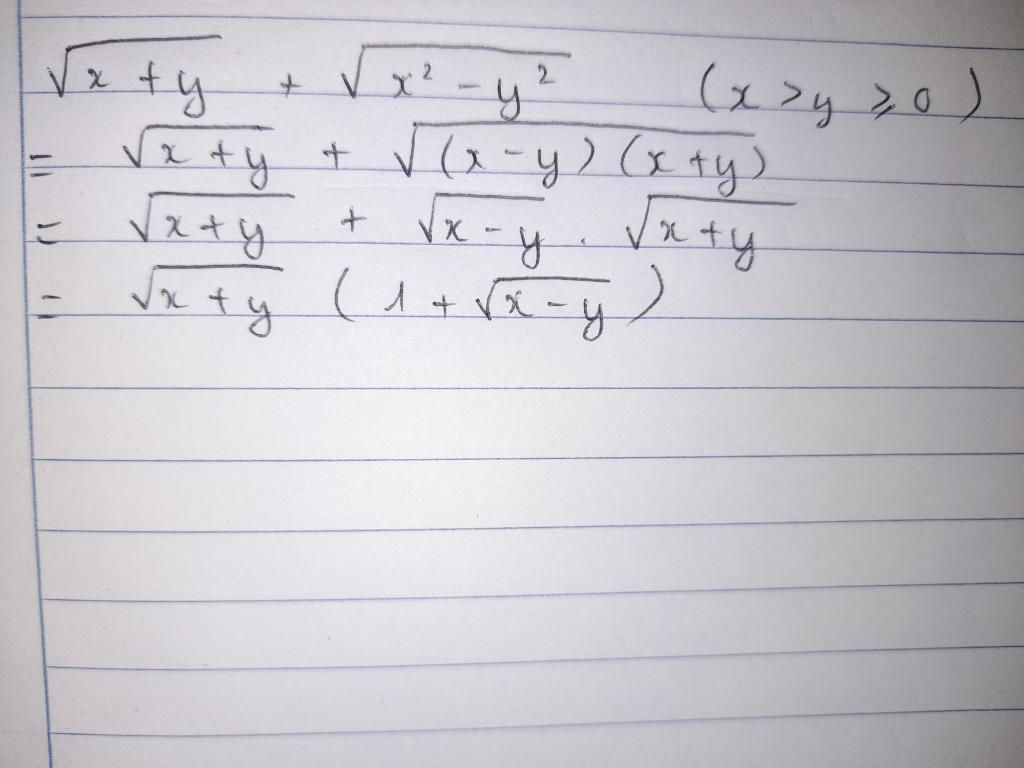 √(x + y) + √(x² - y²) (x > y ⩾ 0)
= √(x + y) + √((x - y)(x + y))
= √(x + y) + √(x - y) . √(x + y)
= √(x + y) (1 + √(x - y))